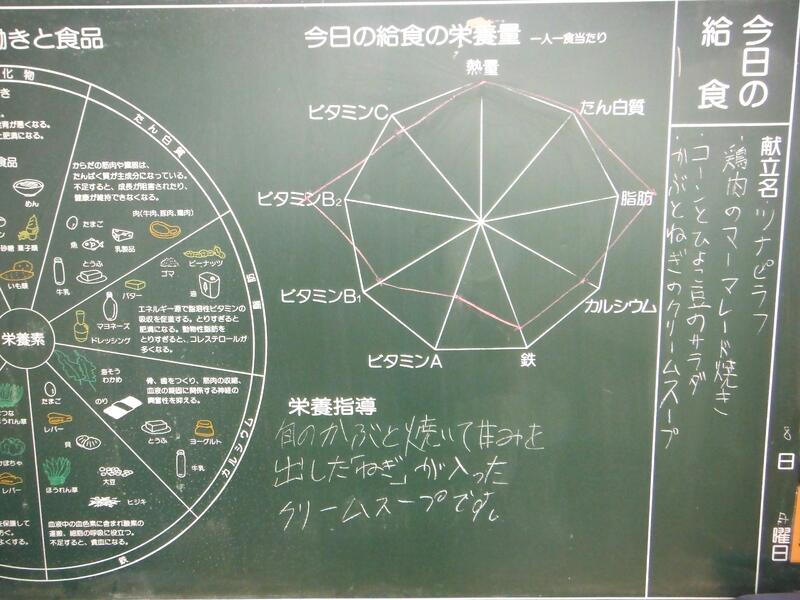 今日の給食
献立名
ツナピラフ
鶏肉のマーマレード焼き
コーンとひよこ豆のサラダ
かぶとねぎのクリームスープ
8日
曜日
今日の給食の栄養量 一人一食当たり
熱量
たん白質
脂肪
カルシウム
鉄
ビタミンA
ビタミンB₁
ビタミンB₂
ビタミンC
栄養指導
旬のかぶと焼いて甘みを
出した「ねぎ」が入った
クリームスープです。
働きと食品
化物
たん白質
からだの筋肉や臓器は、
たんぱく質が主成分になっている。
不足すると、成長が阻害されたり、
健康が維持できなくなる。
食品
めん
砂糖 菓子類
いも類
たまご
肉(牛肉、豚肉、鶏肉)
魚
乳製品
とうふ
牛乳
脂肪
ゴマ
ピーナッツ
油
バター
マヨネーズ
ドレッシング
エネルギー源で脂溶性ビタミンの
吸収を促進する。とりすぎると
肥満になる。動物性脂肪を
とりすぎると、コレステロールが
多くなる。
栄養素
カルシウム
海そう
わかめ
のり
骨、歯をつくり、筋肉の収縮、
血液の凝固に関係する神経の
興奮性を抑える。
とうふ
ヨーグルト
牛乳
鉄
たまご
レバー
貝
ほうれん草
大豆
ヒジキ
血液中の血色素に含まれ酸素の
運搬、細胞の呼吸に役立つ。
不足すると、貧血になる。
ほうれん草
かぼちゃ
レバー